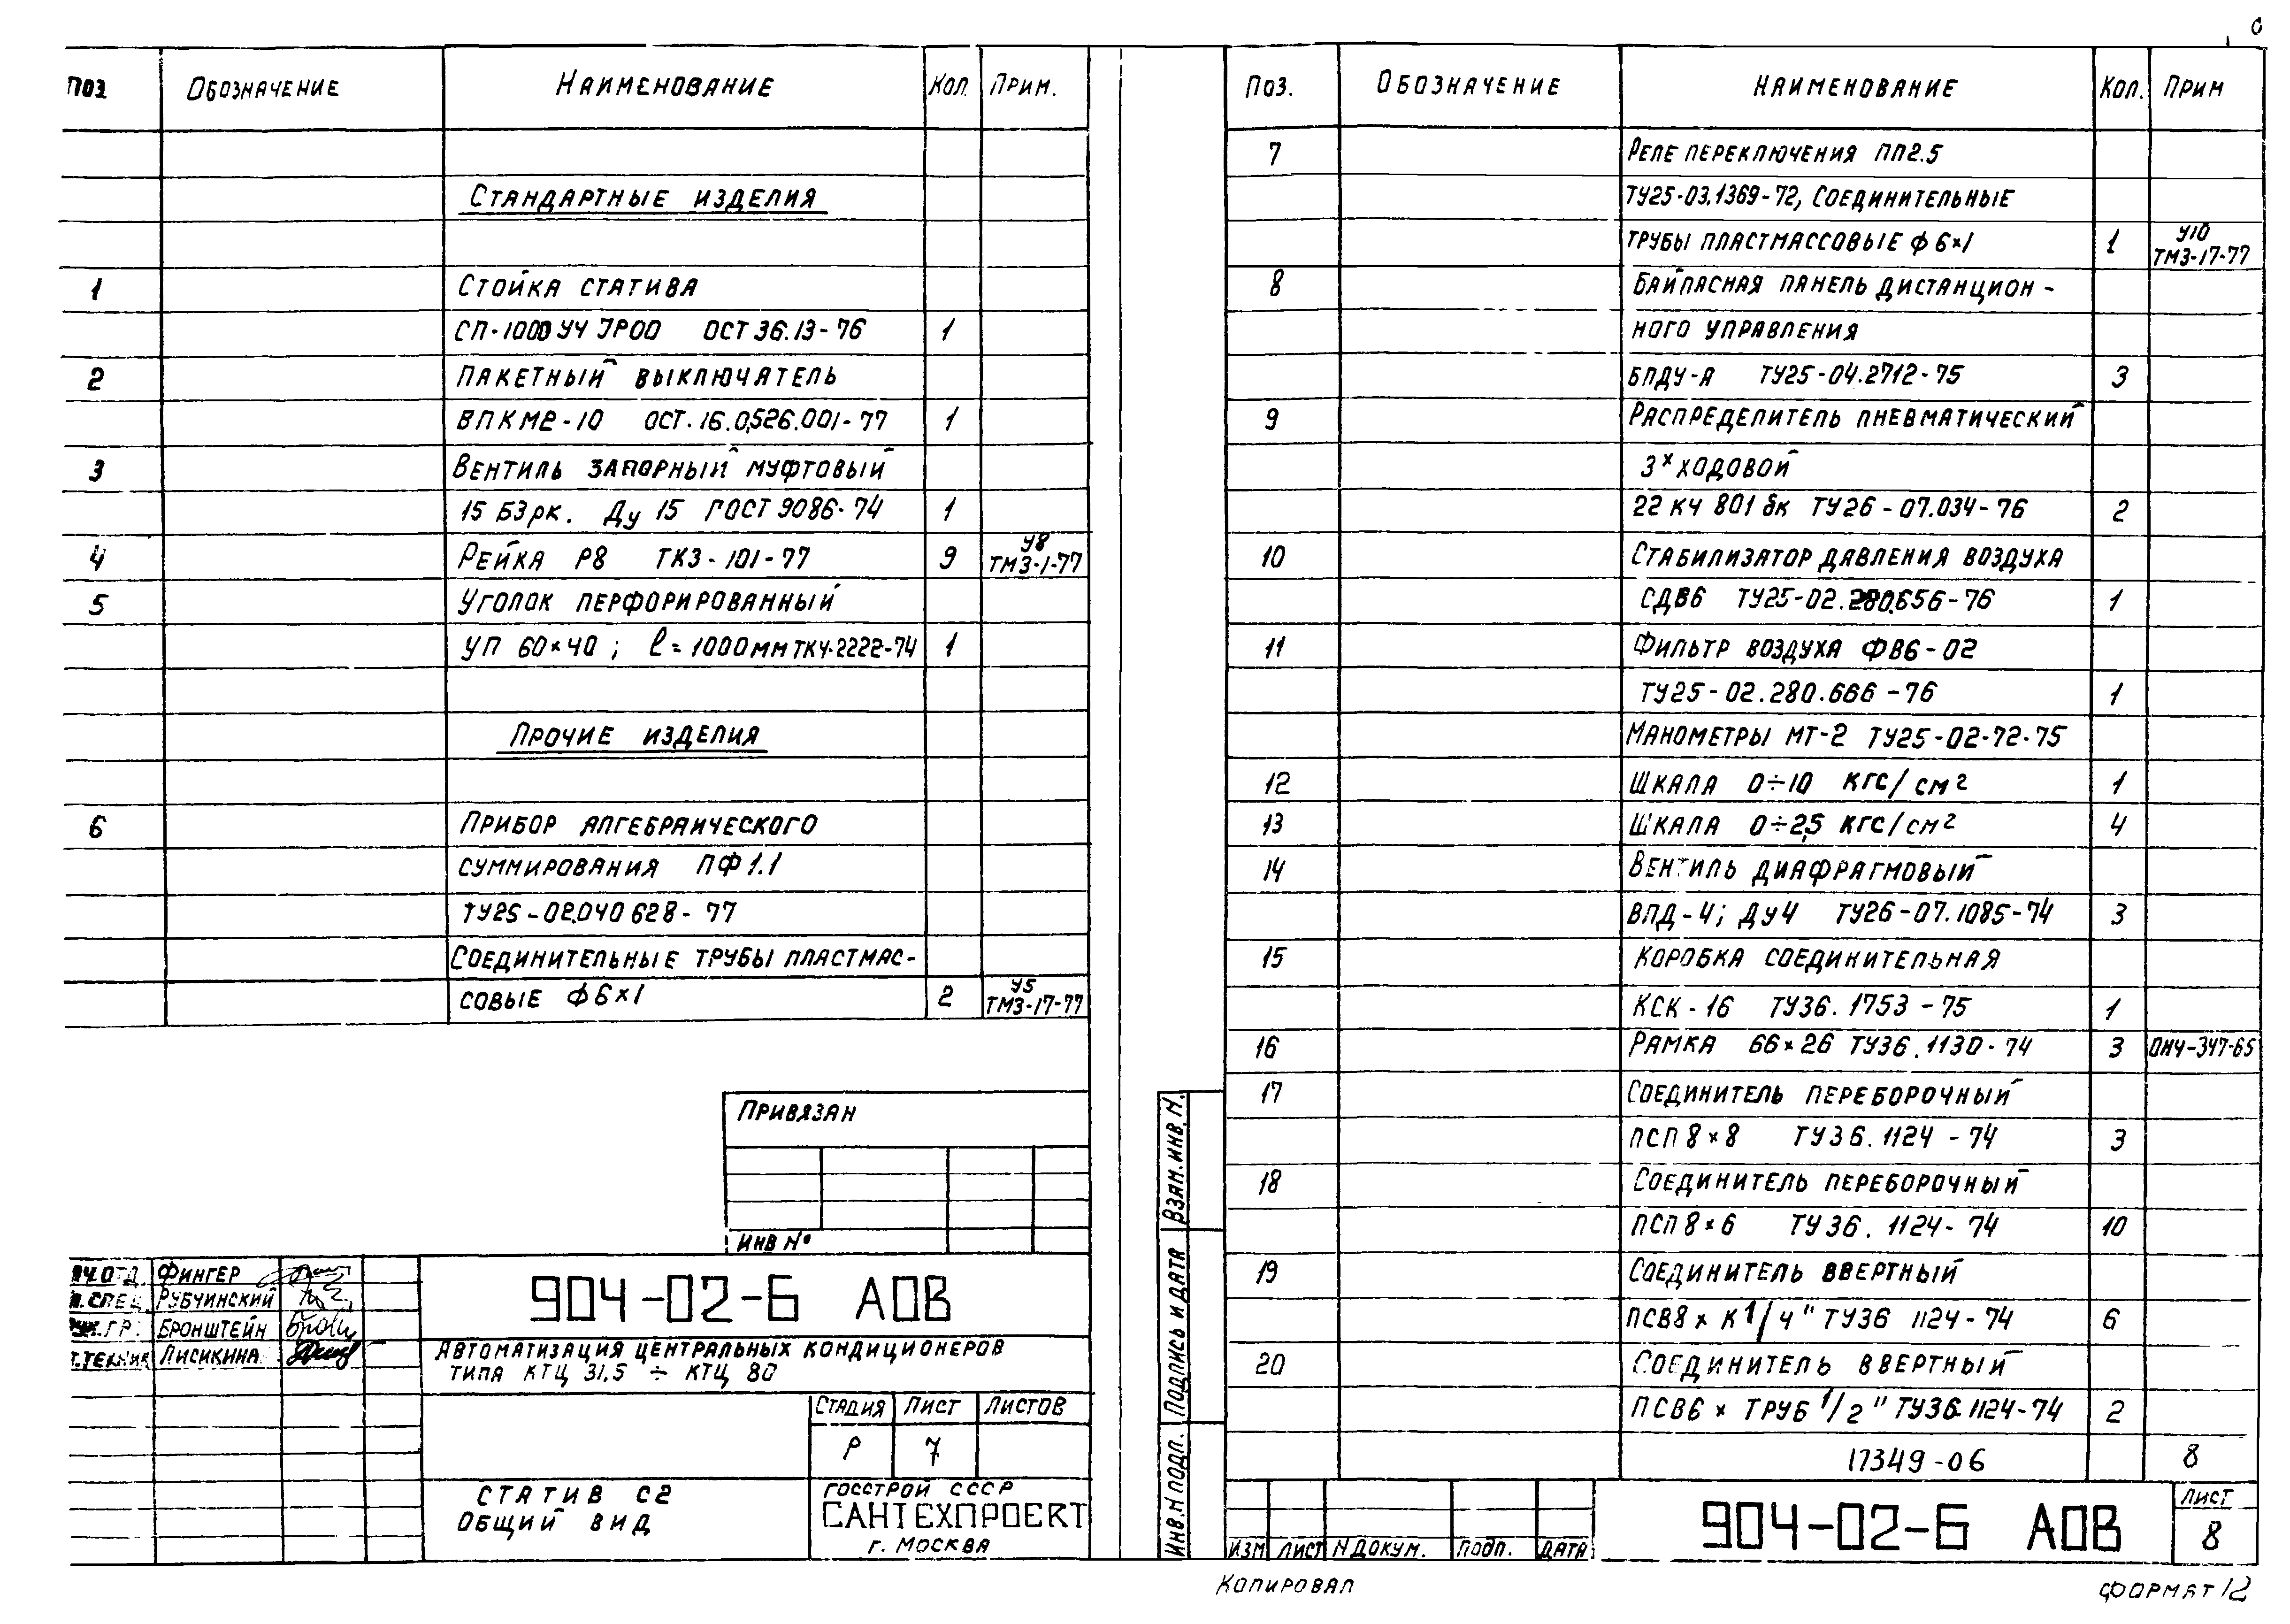 Поз. Обозначение Наименование Кол. Прим.
Стандартные изделия
1 Стойка статива
СП-1000 УЧ IP00 ОСТ 36.13-76 1
2 Пакетный выключатель
ВПКМ2-10 ОСТ.16.0,526.001-77 1
3 Вентиль запорный муфтовый
15 Б3рк. Ду 15 ГОСТ 9086-74 1
4 Рейка Р8 ТК3-101-77 9 У8 ТМ3-1-77
5 Уголок перфорированный
УП 60×40; ℓ=1000мм ТК4-2222-74 1
Прочие изделия
6 Прибор алгебраического
суммирования ПФ1.1
ТУ25-02.040 628-77
Соединительные трубы пластмас-
совые ф6×1 2 У5 ТМ3-17-77
Привязан
Инв №
Фингер
Рубчинский
Рук.гр. Бронштейн
Лисикина
904-02-6 АОВ
Автоматизация центральных кондиционеров
типа КТЦ 31,5 ÷ КТЦ 80
Стадия Лист Листов
Р 7
Статив С2
Общий вид
Госстрой СССР
САНТЕХПРОЕКТ
г. Москва
Поз. Обозначение Наименование Кол. Прим
7 Реле переключения ПП2.5
ТУ25-03.1369-72, соединительные
трубы пластмассовые ф6×1 1 У10 ТМ3-17-77
8 Байпасная панель дистанцион-
ного управления
БПДУ-А ТУ25-04.2712-75 3
9 Распределитель пневматический
3х ходовой
22 кч 801 бк ТУ26-07.034-76 2
10 Стабилизатор давления воздуха
СДВ6 ТУ25-02.280.656-76 1
11 Фильтр воздуха ФВ6-02
ТУ25-02.280.666-76 1
Манометры МТ-2 ТУ25-02-72-75
12 Шкала 0÷10 кгс/см² 1
13 Шкала 0÷2,5 кгс/см² 4
14 Вентиль диафрагмовый
ВПД-4; Ду4 ТУ26-07.1085-74 3
15 Коробка соединительная
КСК-16 ТУ36.1753-75 1
16 Рамка 66×26 ТУ36.1130-74 3 ОН4-347-65
17 Соединитель переборочный
ПСП 8×8 ТУ36.1124-74 3
18 Соединитель переборочный
ПСП 8×6 ТУ36.1124-74 10
19 Соединитель ввертный
ПСВ8 × К 1/4" ТУ36 1124-74 6
20 Соединитель ввертный
ПСВ6 × труб 1/2" ТУ36.1124-74 2
17349-06 8
Взам.инв.N.
Подпись и дата
Инв.N подл.
Изм Лист N докум. Подп. Дата
904-02-6 АОВ
Лист
8
Копировал
Формат 12